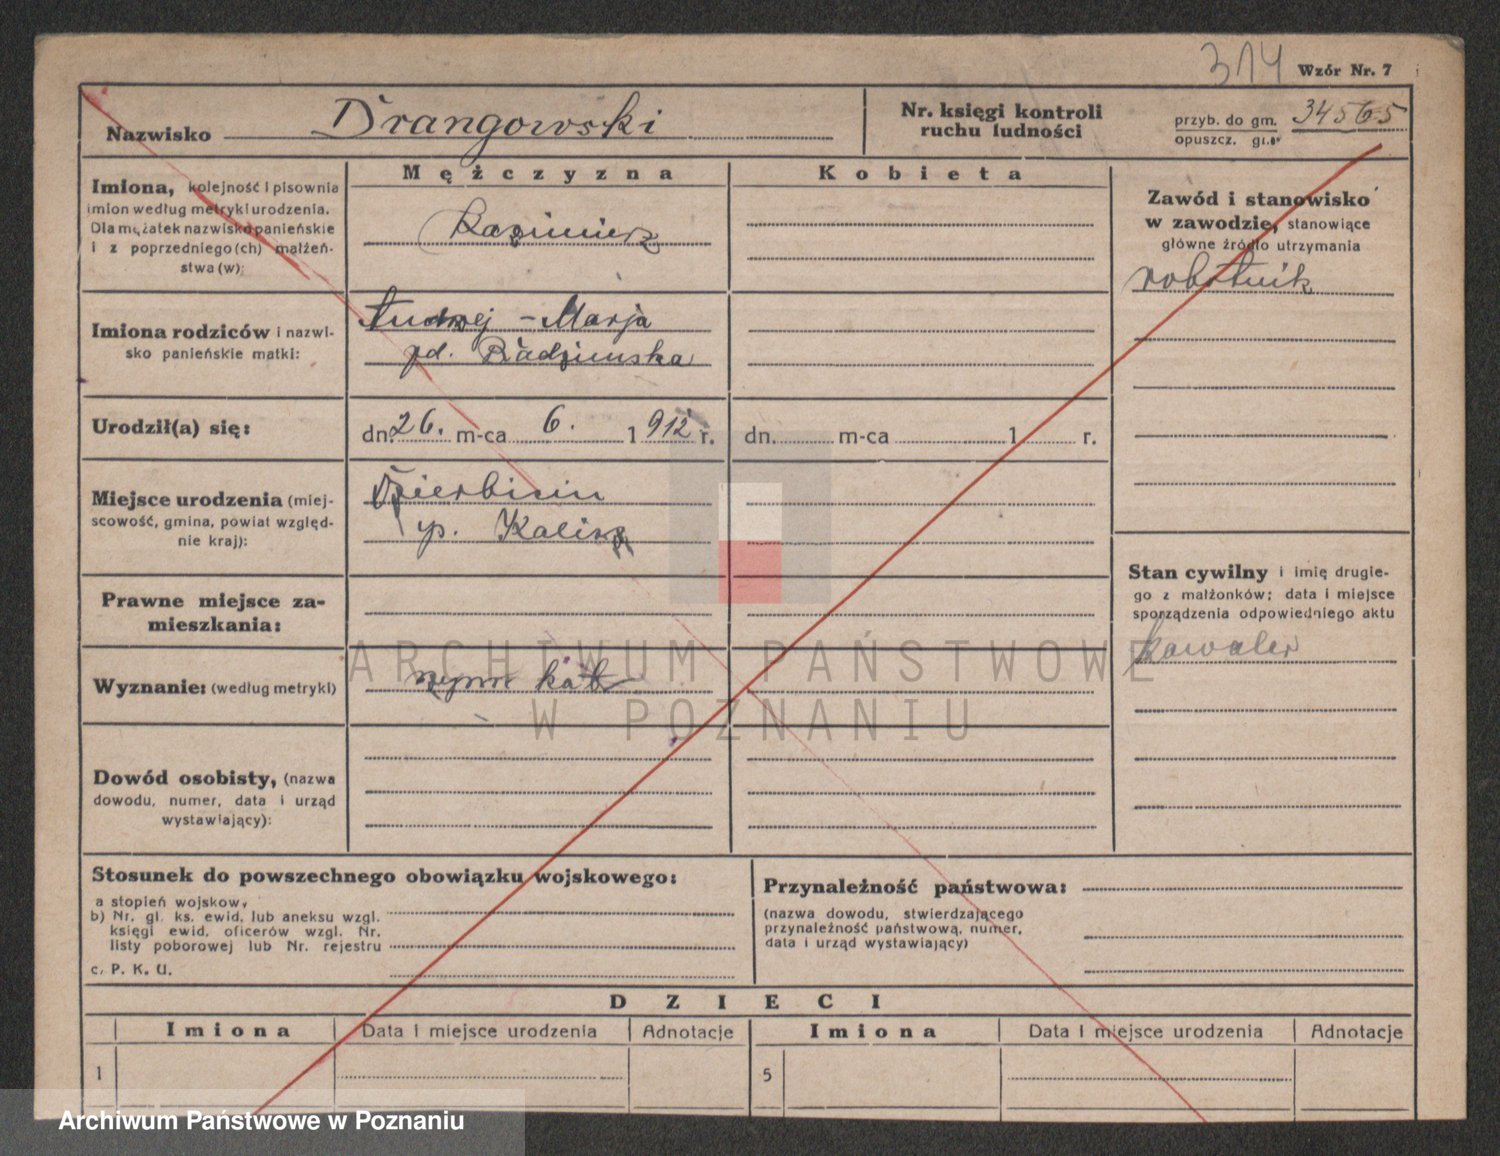 314
Wzór Nr. 7
Nazwisko Drangowski
Nr. księgi kontroli
ruchu ludności
przyb. do gm. 34565
opuszcz. gm.
Mężczyzna
Kobieta
Imiona, kolejność i pisownia
imion według metryki urodzenia.
Dla mężatek nazwisko panieńskie
i z poprzedniego (ch) małżeń-
stwa (w):
Kazimierz
Zawód i stanowisko
w zawodzie, stanowiące
główne źródło utrzymania
robotnik
Imiona rodziców i nazwi-
sko panieńskie matki:
Andrzej - Marja
zd. Radzimska
Urodził(a) się:
dn. 26. m-ca 6. 1912 r.
dn. m-ca 1 r.
Miejsce urodzenia (miej-
scowość, gmina, powiat względ-
nie kraj):
Dzierbicin
p. Kalisz
Prawne miejsce za-
mieszkania:
Stan cywilny i imię drugie-
go z małżonków; data i miejsce
sporządzenia odpowiedniego aktu
kawaler
Wyznanie: (według metryki)
rzym kat
Dowód osobisty, (nazwa
dowodu, numer, data i urząd
wystawiający):
Stosunek do powszechnego obowiązku wojskowego:
a stopień wojskow,
b) Nr. gl. ks. ewid, lub aneksu wzgl.
księgi ewid, oficerów wzgl. Nr.
listy poborowej lub Nr. rejestru
c. P. K. U.
Przynależność państwowa:
(nazwa dowodu, stwierdzającego
przynależność państwową, numer,
data i urząd wystawiający)
DZIECI
Imiona Data i miejsce urodzenia Adnotacje Imiona Data i miejsce urodzenia Adnotacje
1 5
ARCHIWUM PAŃSTWOWE
W POZNANIU
Archiwum Państwowe w Poznaniu